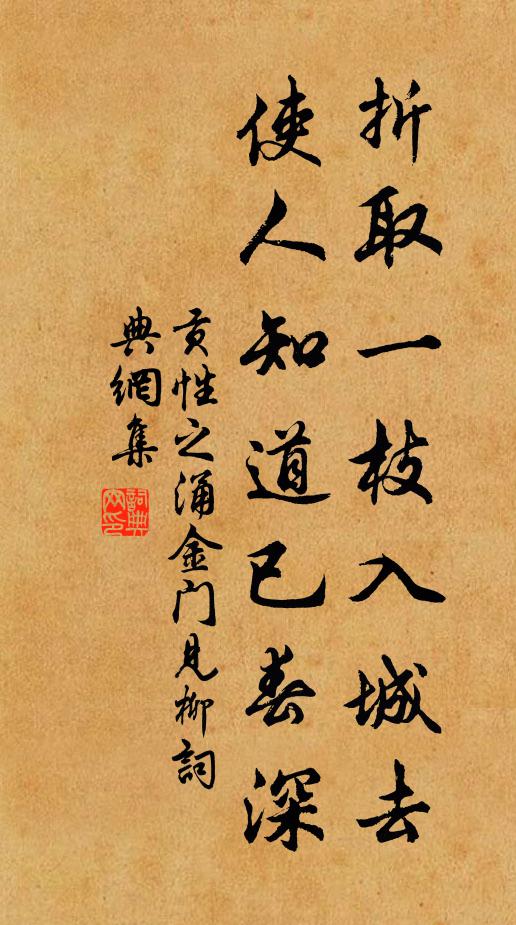 折取一枝入城去
使人知道已春深
贡性之涌金门见柳詞
典網集
詞典網印